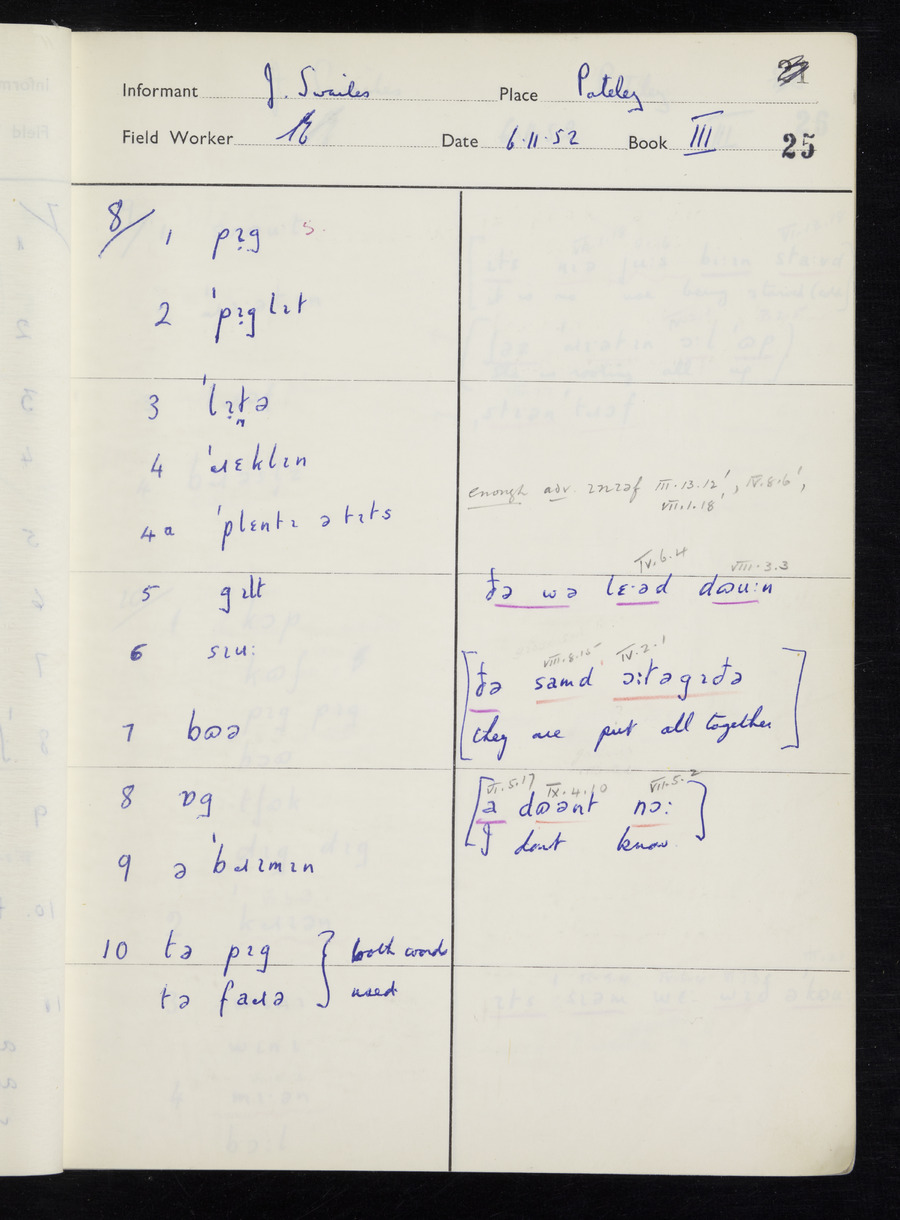 Informant J. Swailes Place Pateley
Field Worker Date 6.11.52 Book III 25
8/ 1 pɪ̣g s.
2 ˈpɪ̣glɪt
3 ˈlɪ̣t̪ə
4 ˈɹɛklɪn
4a ˈplɛntɪ ə tɪts
5 gɪlt
6 sɪu:
7 bɷə
8 ɒg
9 ə ˈbɹɪmɪn
10 tə pɪg } both words
tə faɹə } used
enough adv. ɪnɪəf III.13.12', IV.8.6',
VII.1.18'
IV.6.4 VIII.3.3
ðə wə lɛ·əd dɷu:n
VIII.8.15 IV.2.1
[ðə samd ɔ:təgɪðə
they are put all together]
VI.5.17 IX.4.10 VII.5.2
[a dɷənt nɔ:
I dont know]